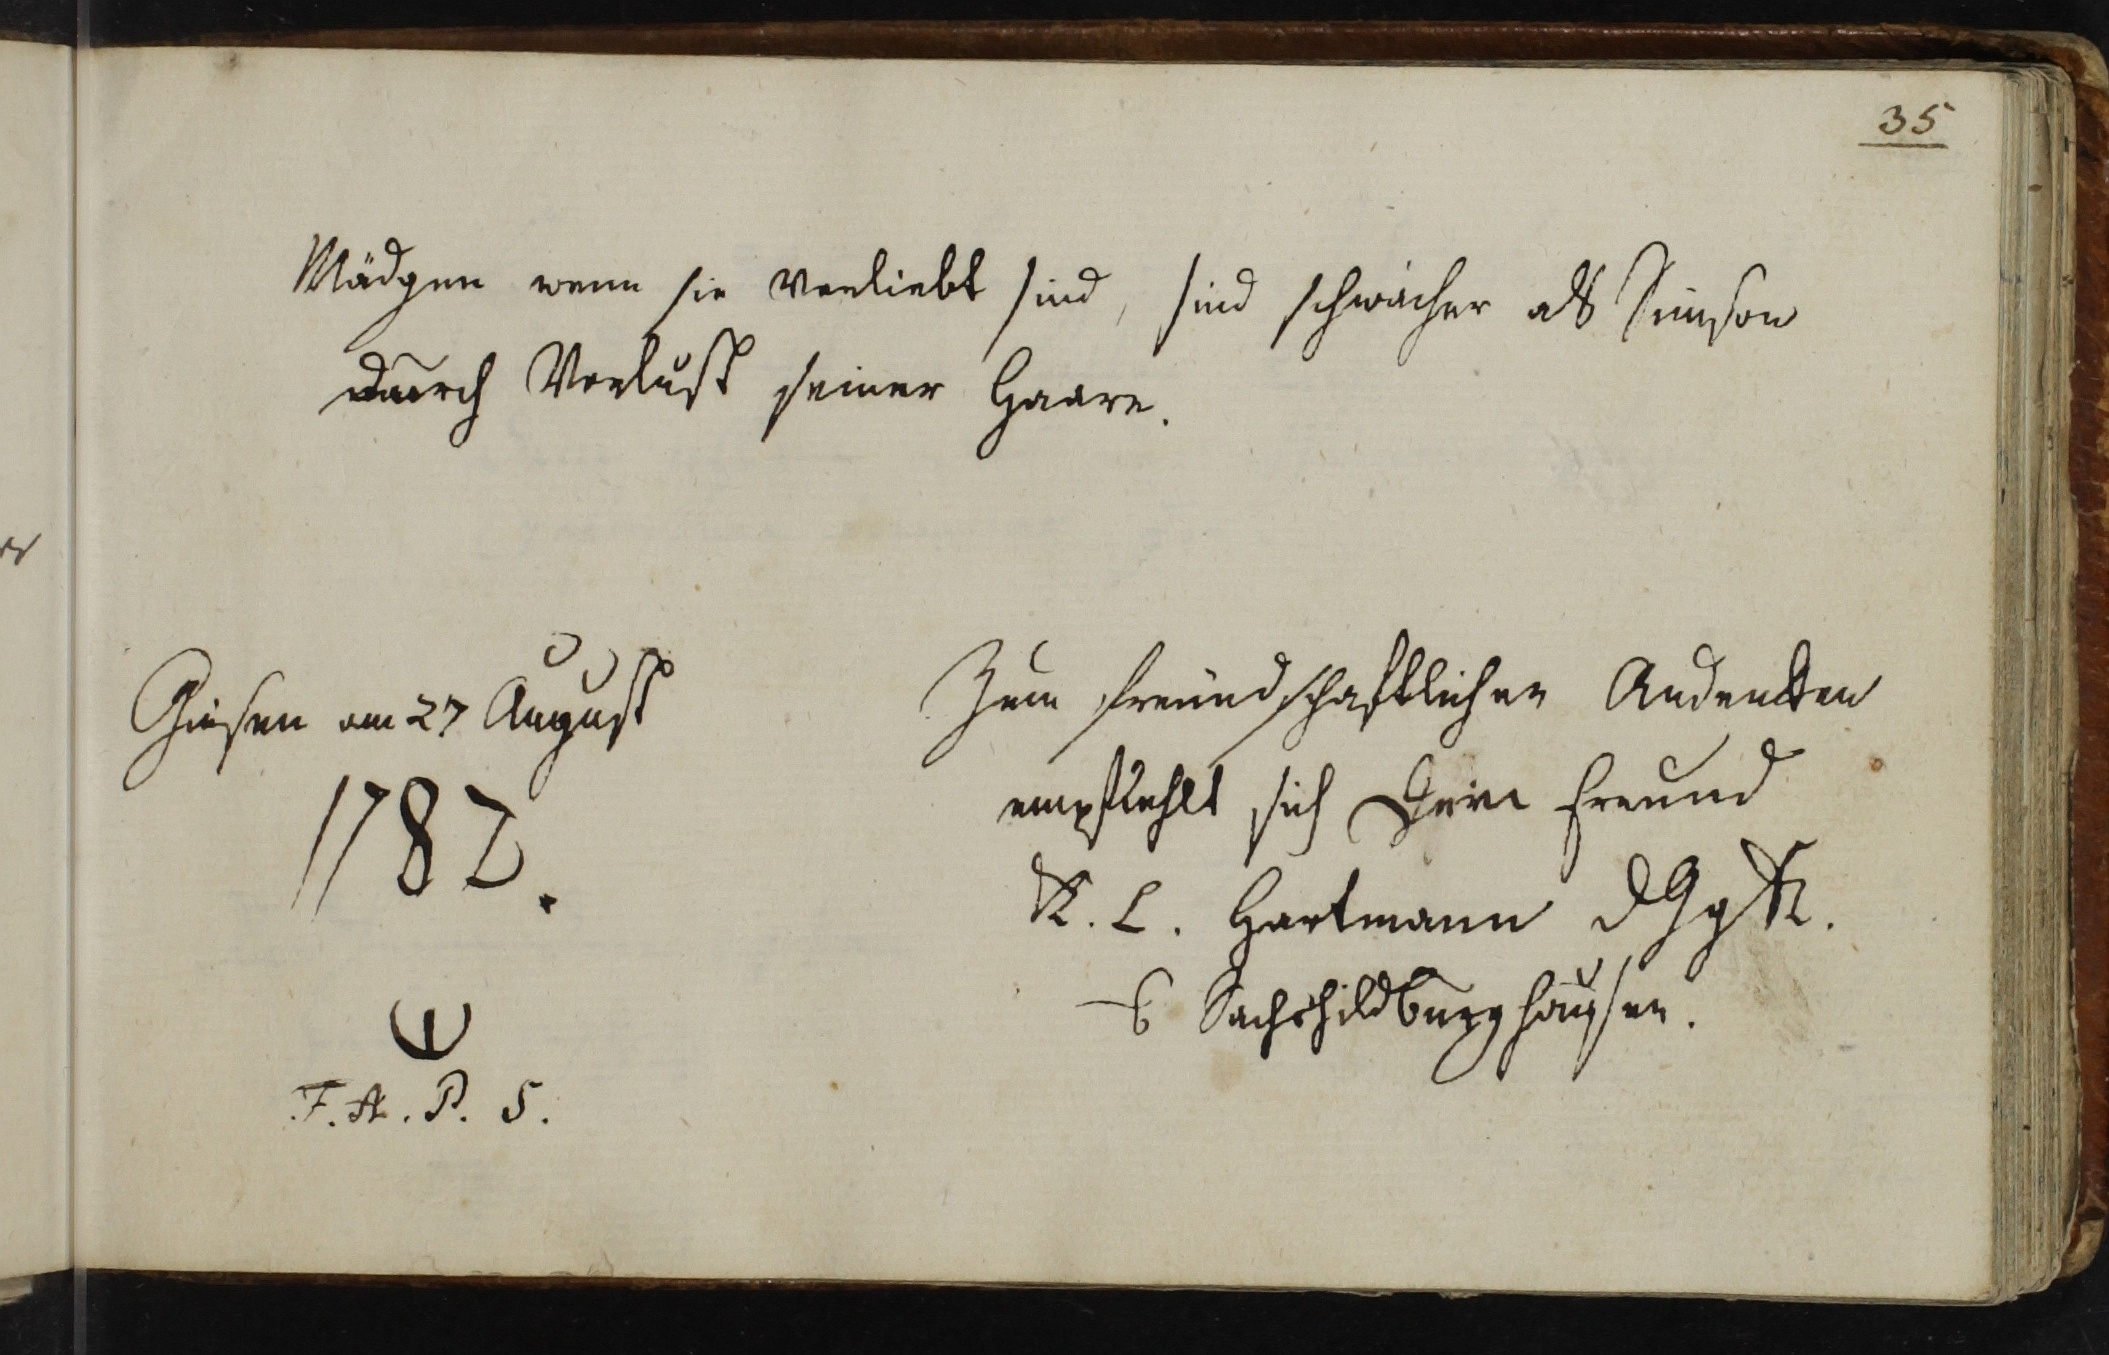 35
Mädgen wenn sie verliebt sind, sind schwächer als Simson
durch Verlust seiner Haare.
Giesen am 27 August
1782.
F. A. P. S.
Zum freundschaftlichen Andencken
empfiehlt sich Dein Freund
K. L. Hartmann d G g K.
Sachshildburghausen.